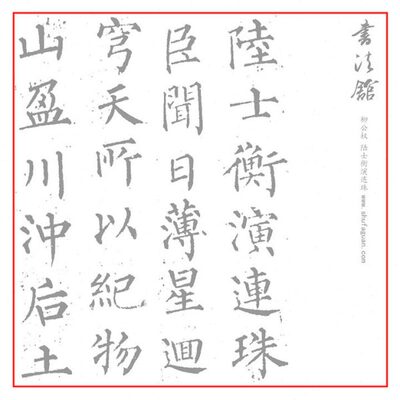 书法館
柳公权 陆士衡演连珠 www.shufaguan.com
陸士衡演連珠
臣聞日薄星迴
穹天所以紀物
山盈川沖后土